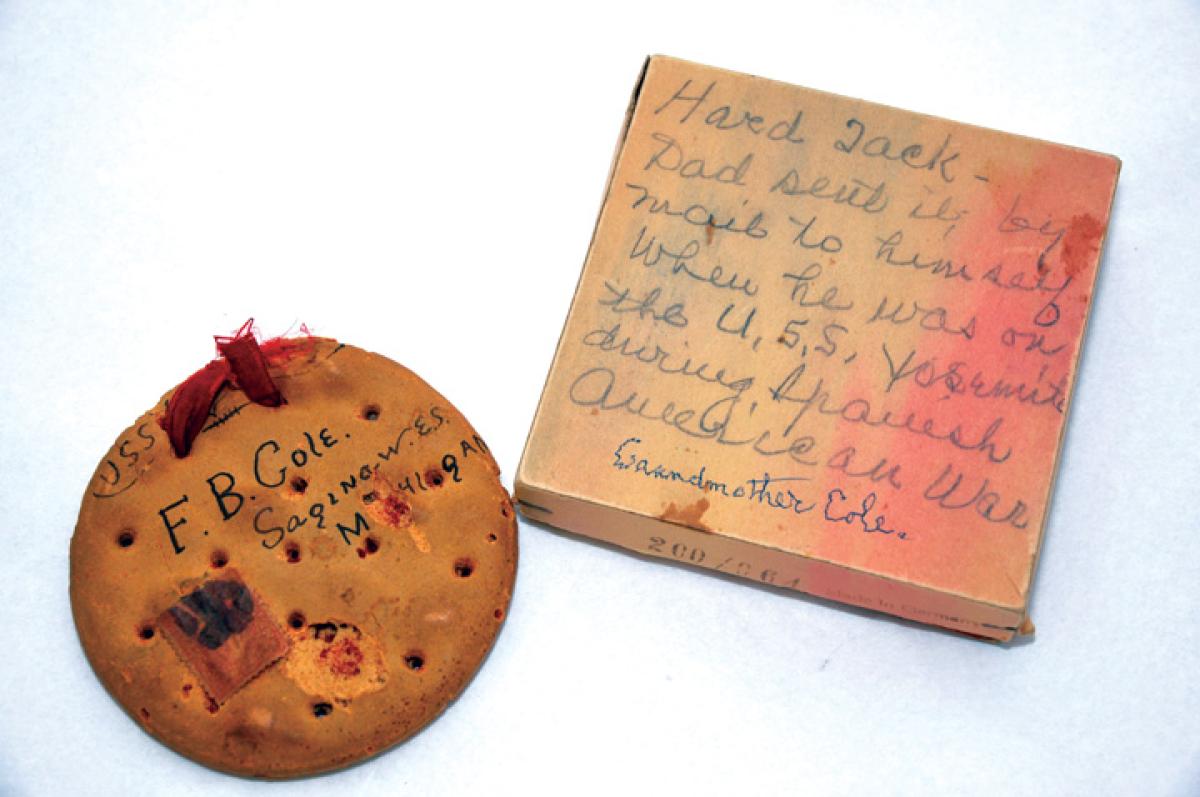 USS
F. B. Cole.
Saginaw. E.S.
Michigan
Hard Tack -
Dad sent it by
mail to himself
When he was on
the U.S.S. Yosemite
during Spanish
American War
Grandmother Cole.
200/064
Made in Germany